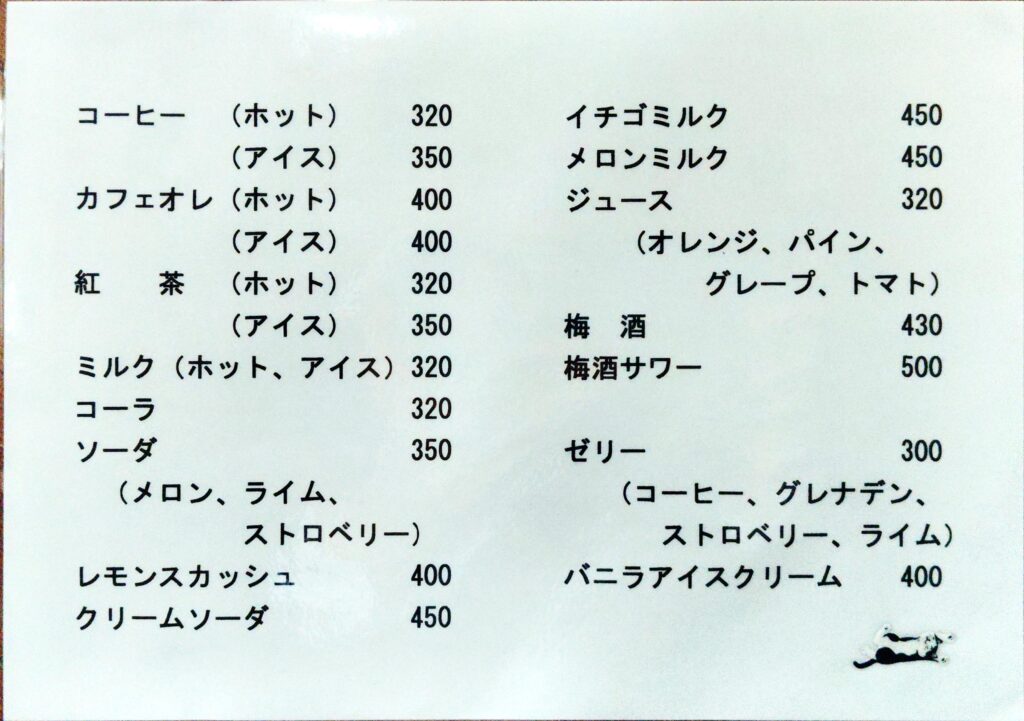 コーヒー （ホット） 320
（アイス） 350
カフェオレ（ホット） 400
（アイス） 400
紅　　茶 （ホット） 320
（アイス） 350
ミルク（ホット、アイス） 320
コーラ 320
ソーダ 350
（メロン、ライム、
ストロベリー）
レモンスカッシュ 400
クリームソーダ 450
イチゴミルク 450
メロンミルク 450
ジュース 320
（オレンジ、パイン、
グレープ、トマト）
梅　酒 430
梅酒サワー 500
ゼリー 300
（コーヒー、グレナデン、
ストロベリー、ライム）
バニラアイスクリーム 400